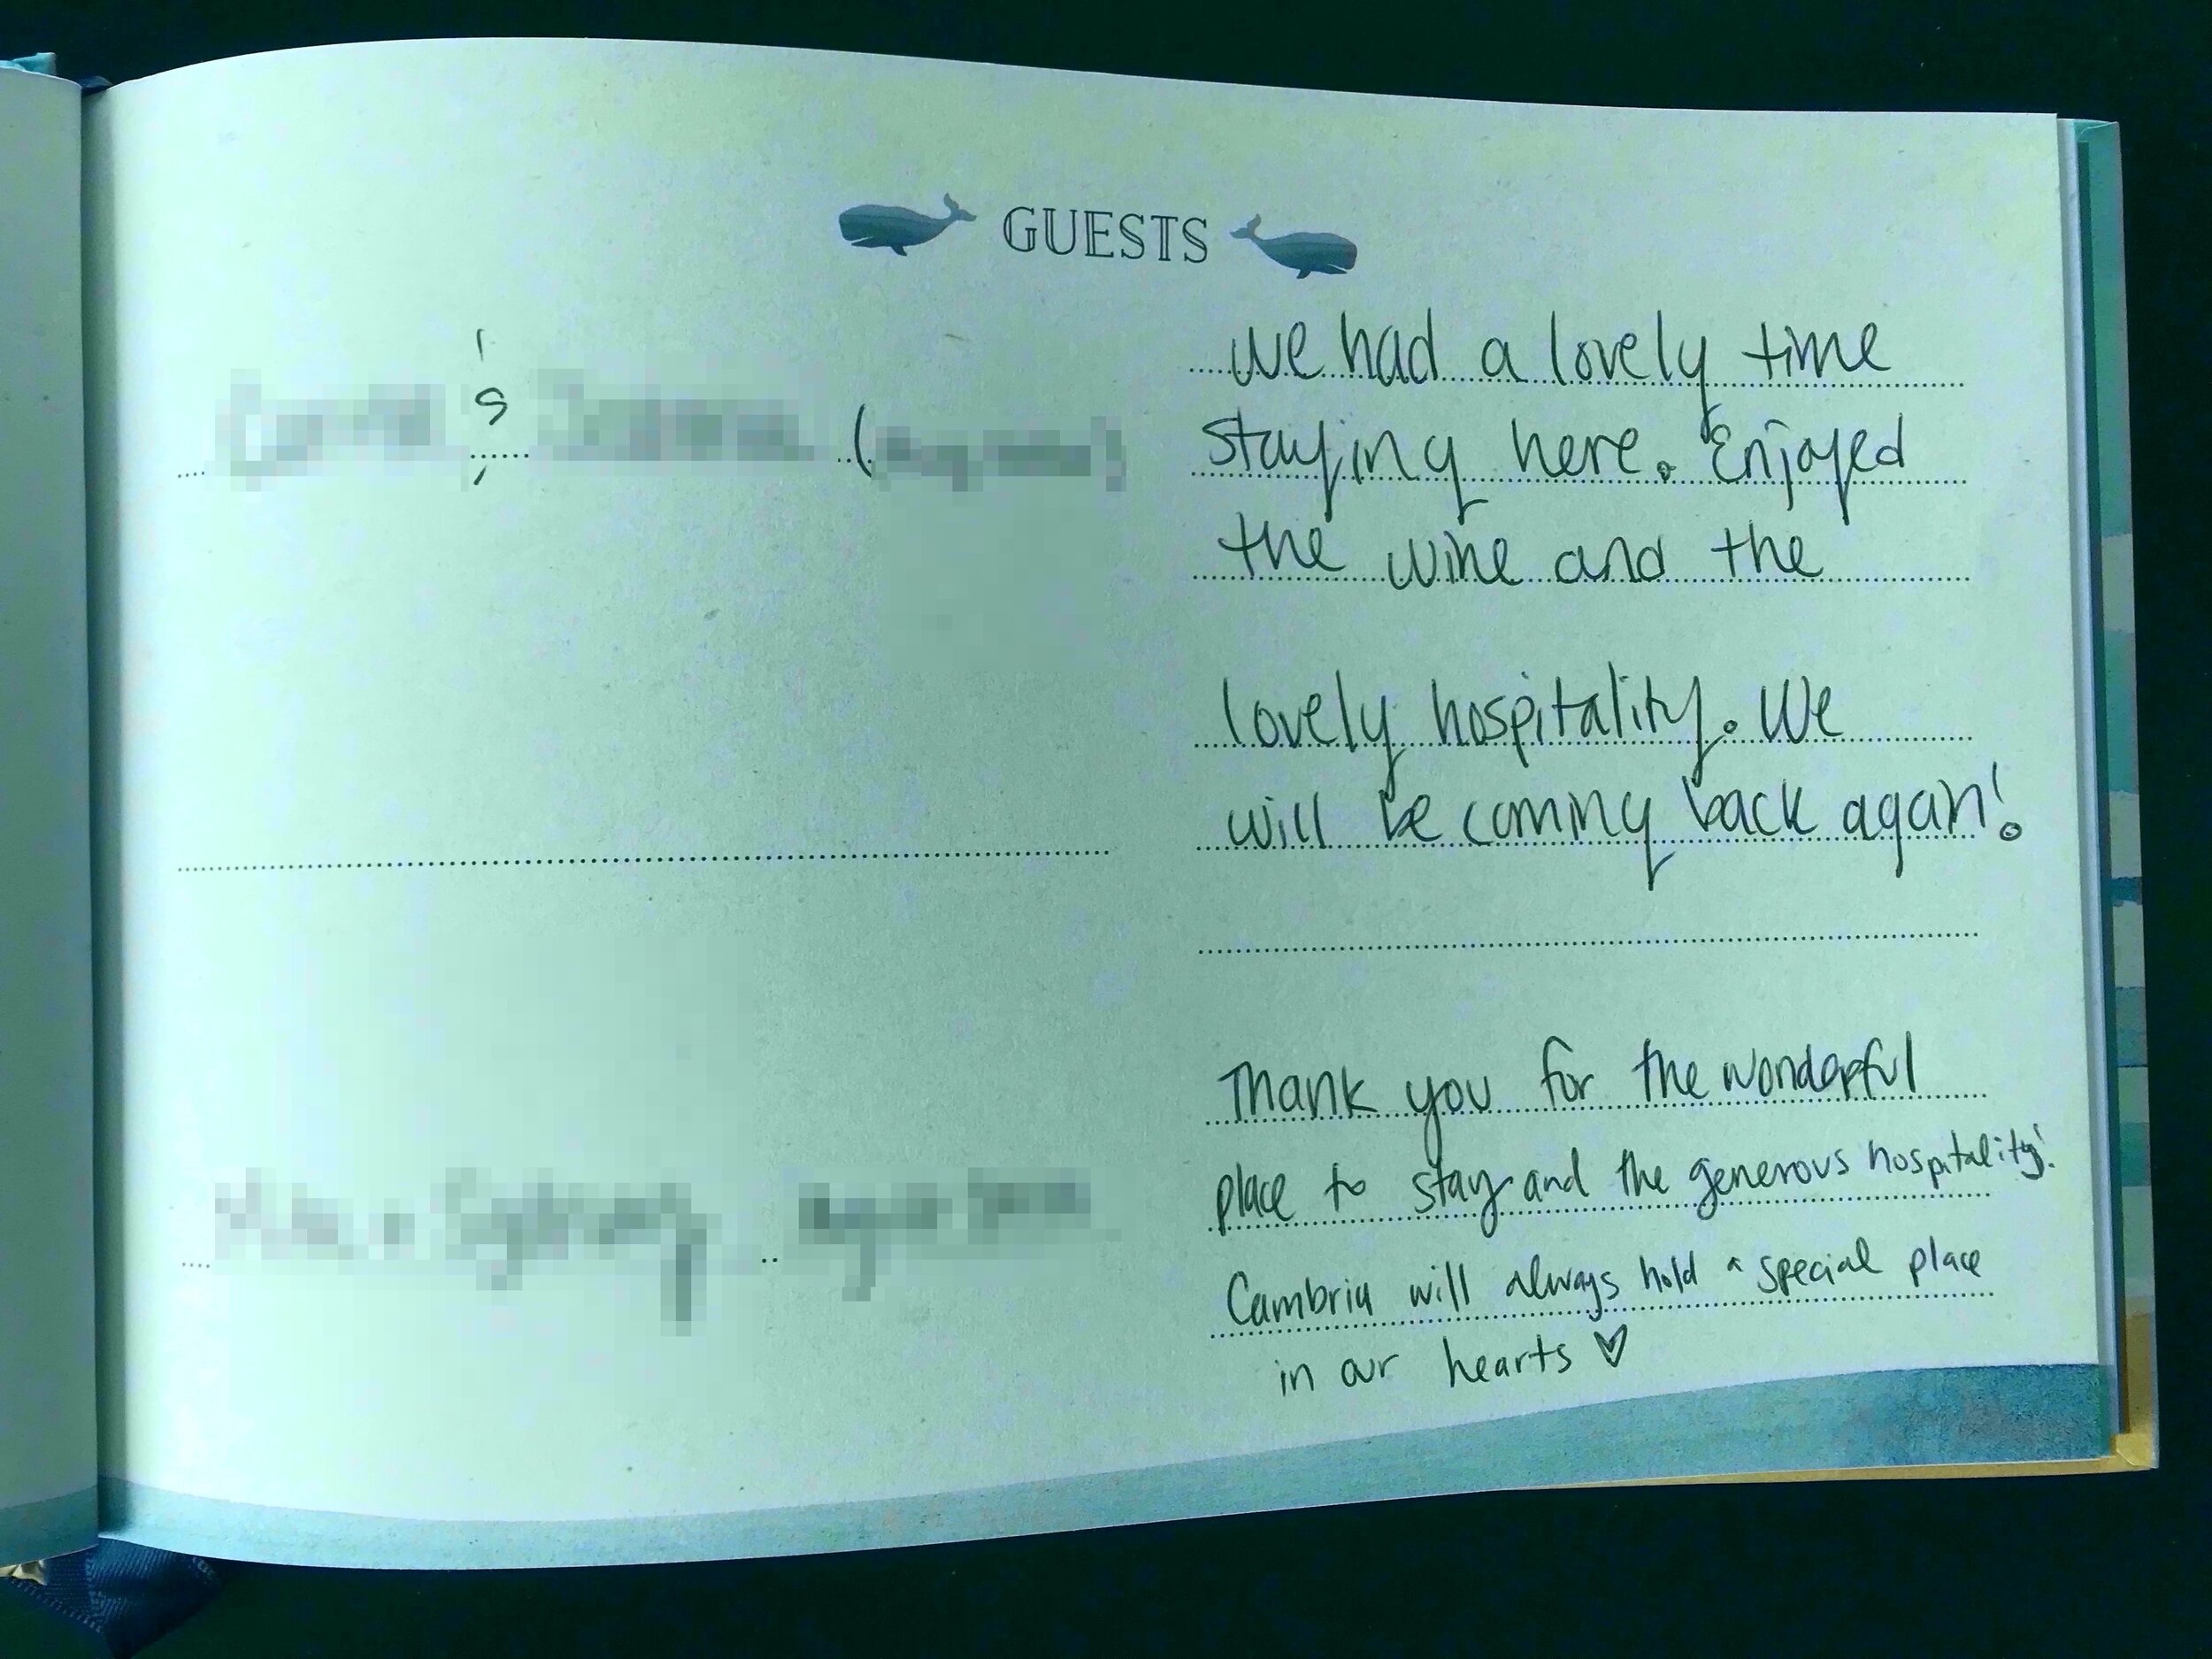 GUESTS
We had a lovely time
staying here. Enjoyed
the wine and the
lovely hospitality. We
will be coming back again!
Thank you for the wonderful
place to stay and the generous hospitality!
Cambria will always hold a special place
in our hearts ♡